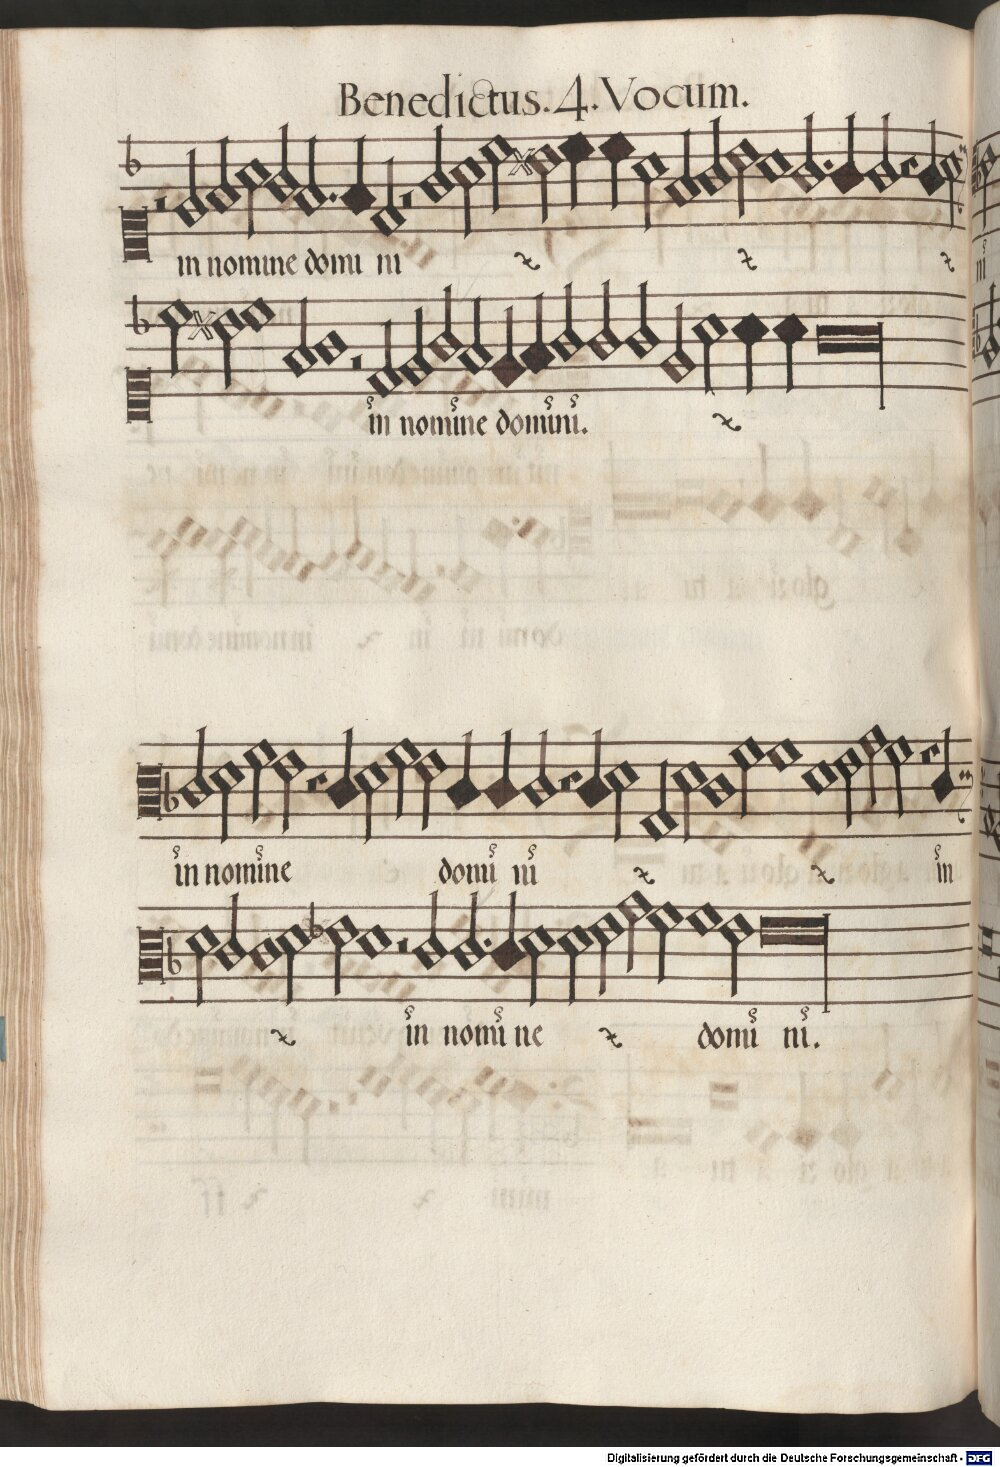 Benedictus. 4. Vocum.
in nomine domi ni
in nomine domini.
in nomine domi ni in
in nomi ne domi ni.
ni
Digitalisierung gefördert durch die Deutsche Forschungsgemeinschaft - DFG